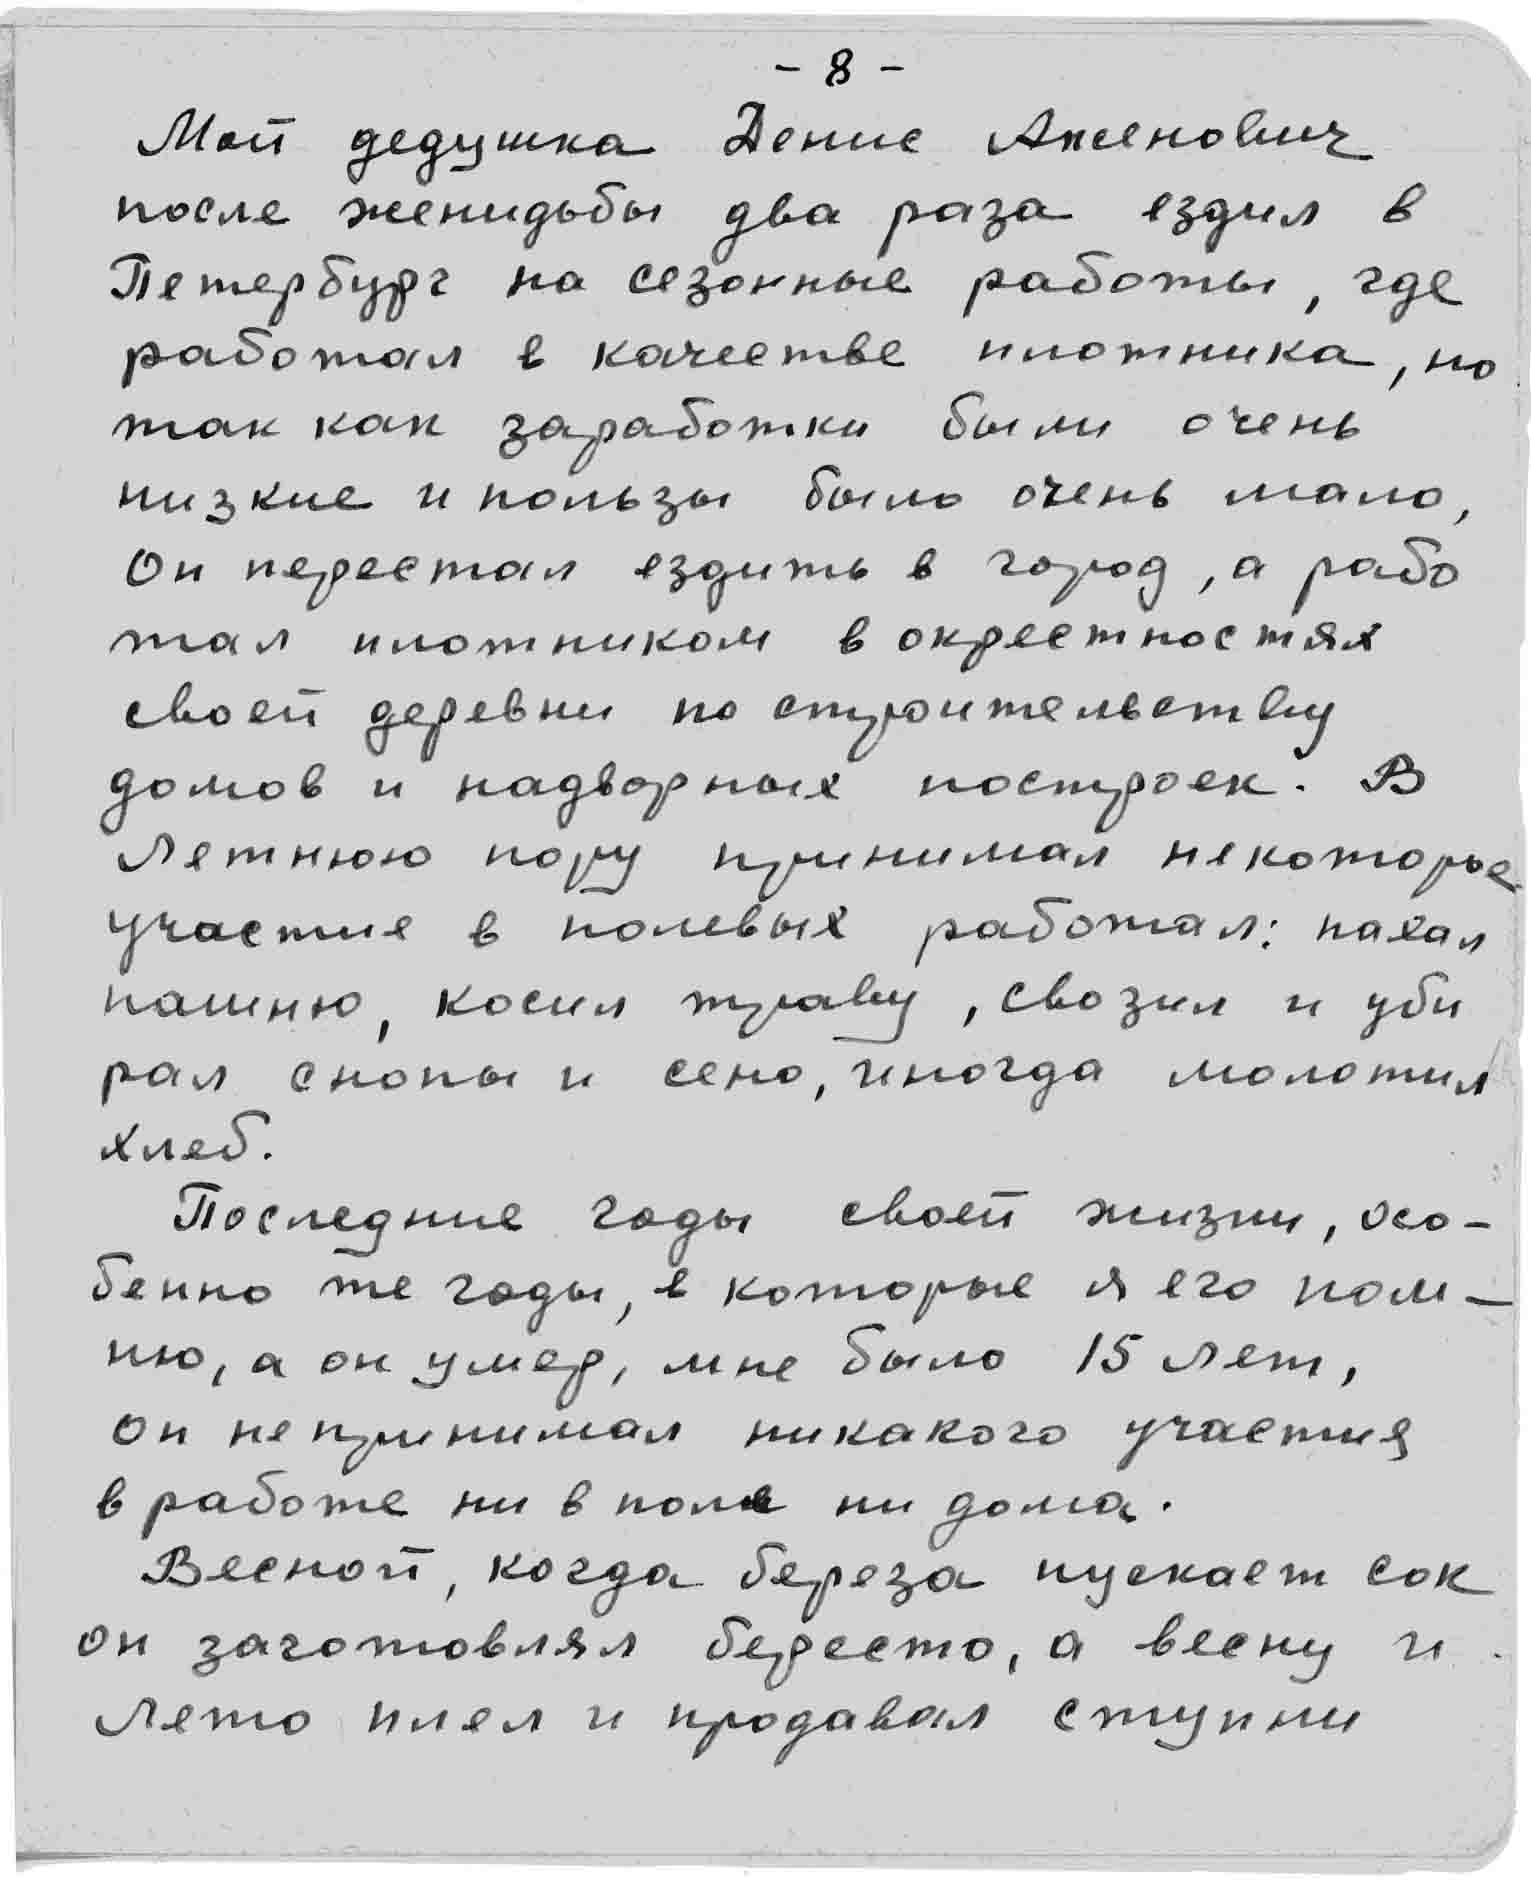 - 8 -
Мой дедушка Денис Аксенович
после женидьбы два раза ездил в
Петербург на сезонные работы, где
работал в качестве плотника, но
так как заработки были очень
низкие и пользы было очень мало,
Он перестал ездить в город, а рабо
тал плотником в окрестностях
своей деревни по строительству
домов и надворных построек. В
летнюю пору принимал некоторые
участие в полевых работал: пахал
пашню, косил траву, свозил и уби
рал снопы и сено, иногда молотил
хлеб.
Последние годы своей жизни, осо-
бенно те годы, в которые я его пом-
ню, а он умер, мне было 15 лет,
он не принимал никакого участия
в работе ни в поле ни дома.
Весной, когда береза пускает сок
он заготовлял бересто, а весну и
лето плел и продавал ступни